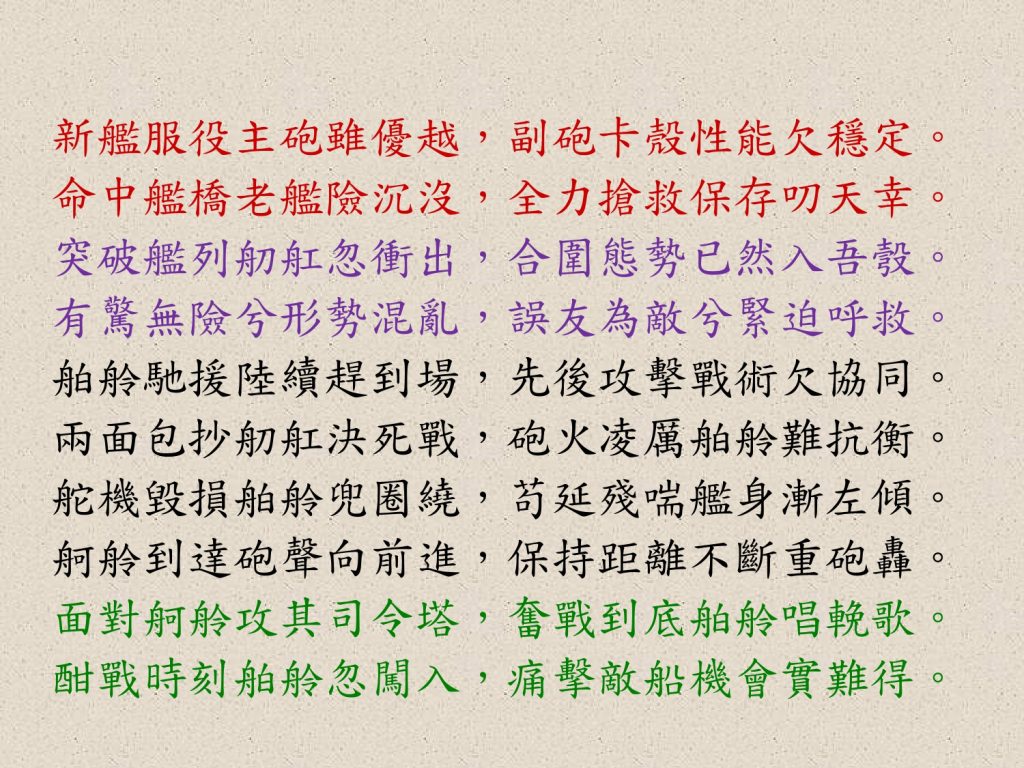 新艦服役主砲雖優越，副砲卡殼性能欠穩定。
命中艦橋老艦險沉沒，全力搶救保存叨天幸。
突破艦列舠舡忽衝出，合圍態勢已然入吾彀。
有驚無險兮形勢混亂，誤友為敵兮緊迫呼救。
舶舲馳援陸續趕到場，先後攻擊戰術欠協同。
兩面包抄舠舡決死戰，砲火凌厲舶舲難抗衡。
舵機毀損舶舲兜圈繞，苟延殘喘艦身漸左傾。
舸舲到達砲聲向前進，保持距離不斷重砲轟。
面對舸舲攻其司令塔，奮戰到底舶舲唱輓歌。
酣戰時刻舶舲忽闖入，痛擊敵船機會實難得。